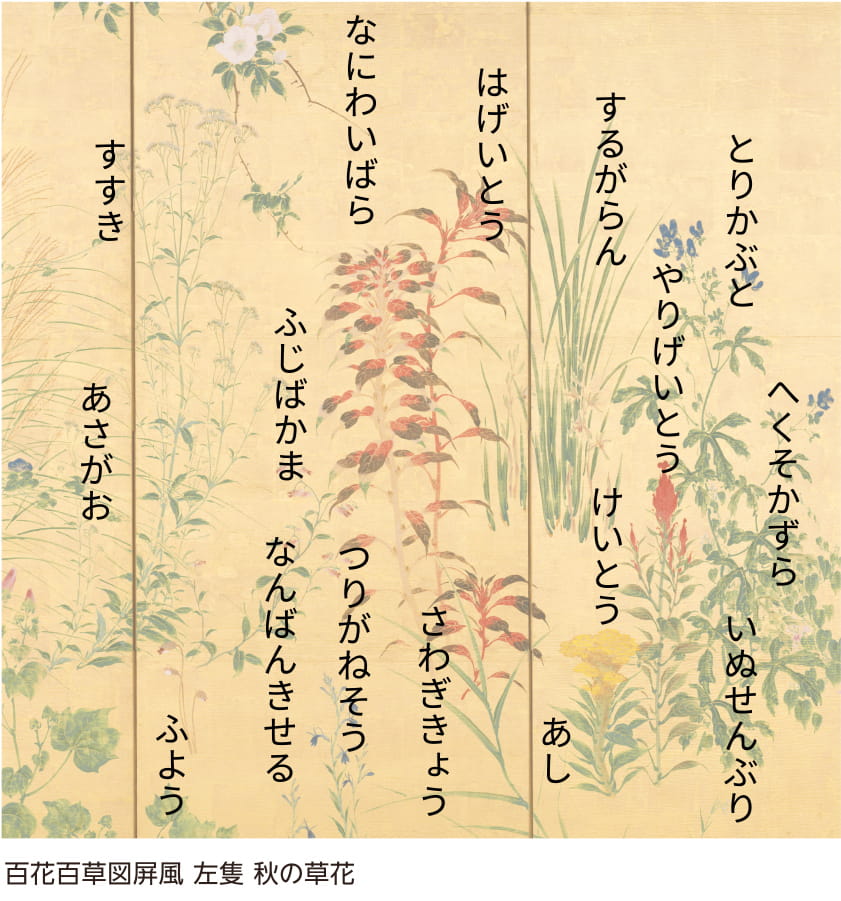 とりかぶと
へくそかずら
いぬせんぶり
やりげいとう
するがらん
けいとう
あし
はげいとう
さわぎきょう
なにわいばら
つりがねそう
ふじばかま
なんばんきせる
ふよう
すすき
あさがお
百花百草図屏風 左隻 秋の草花